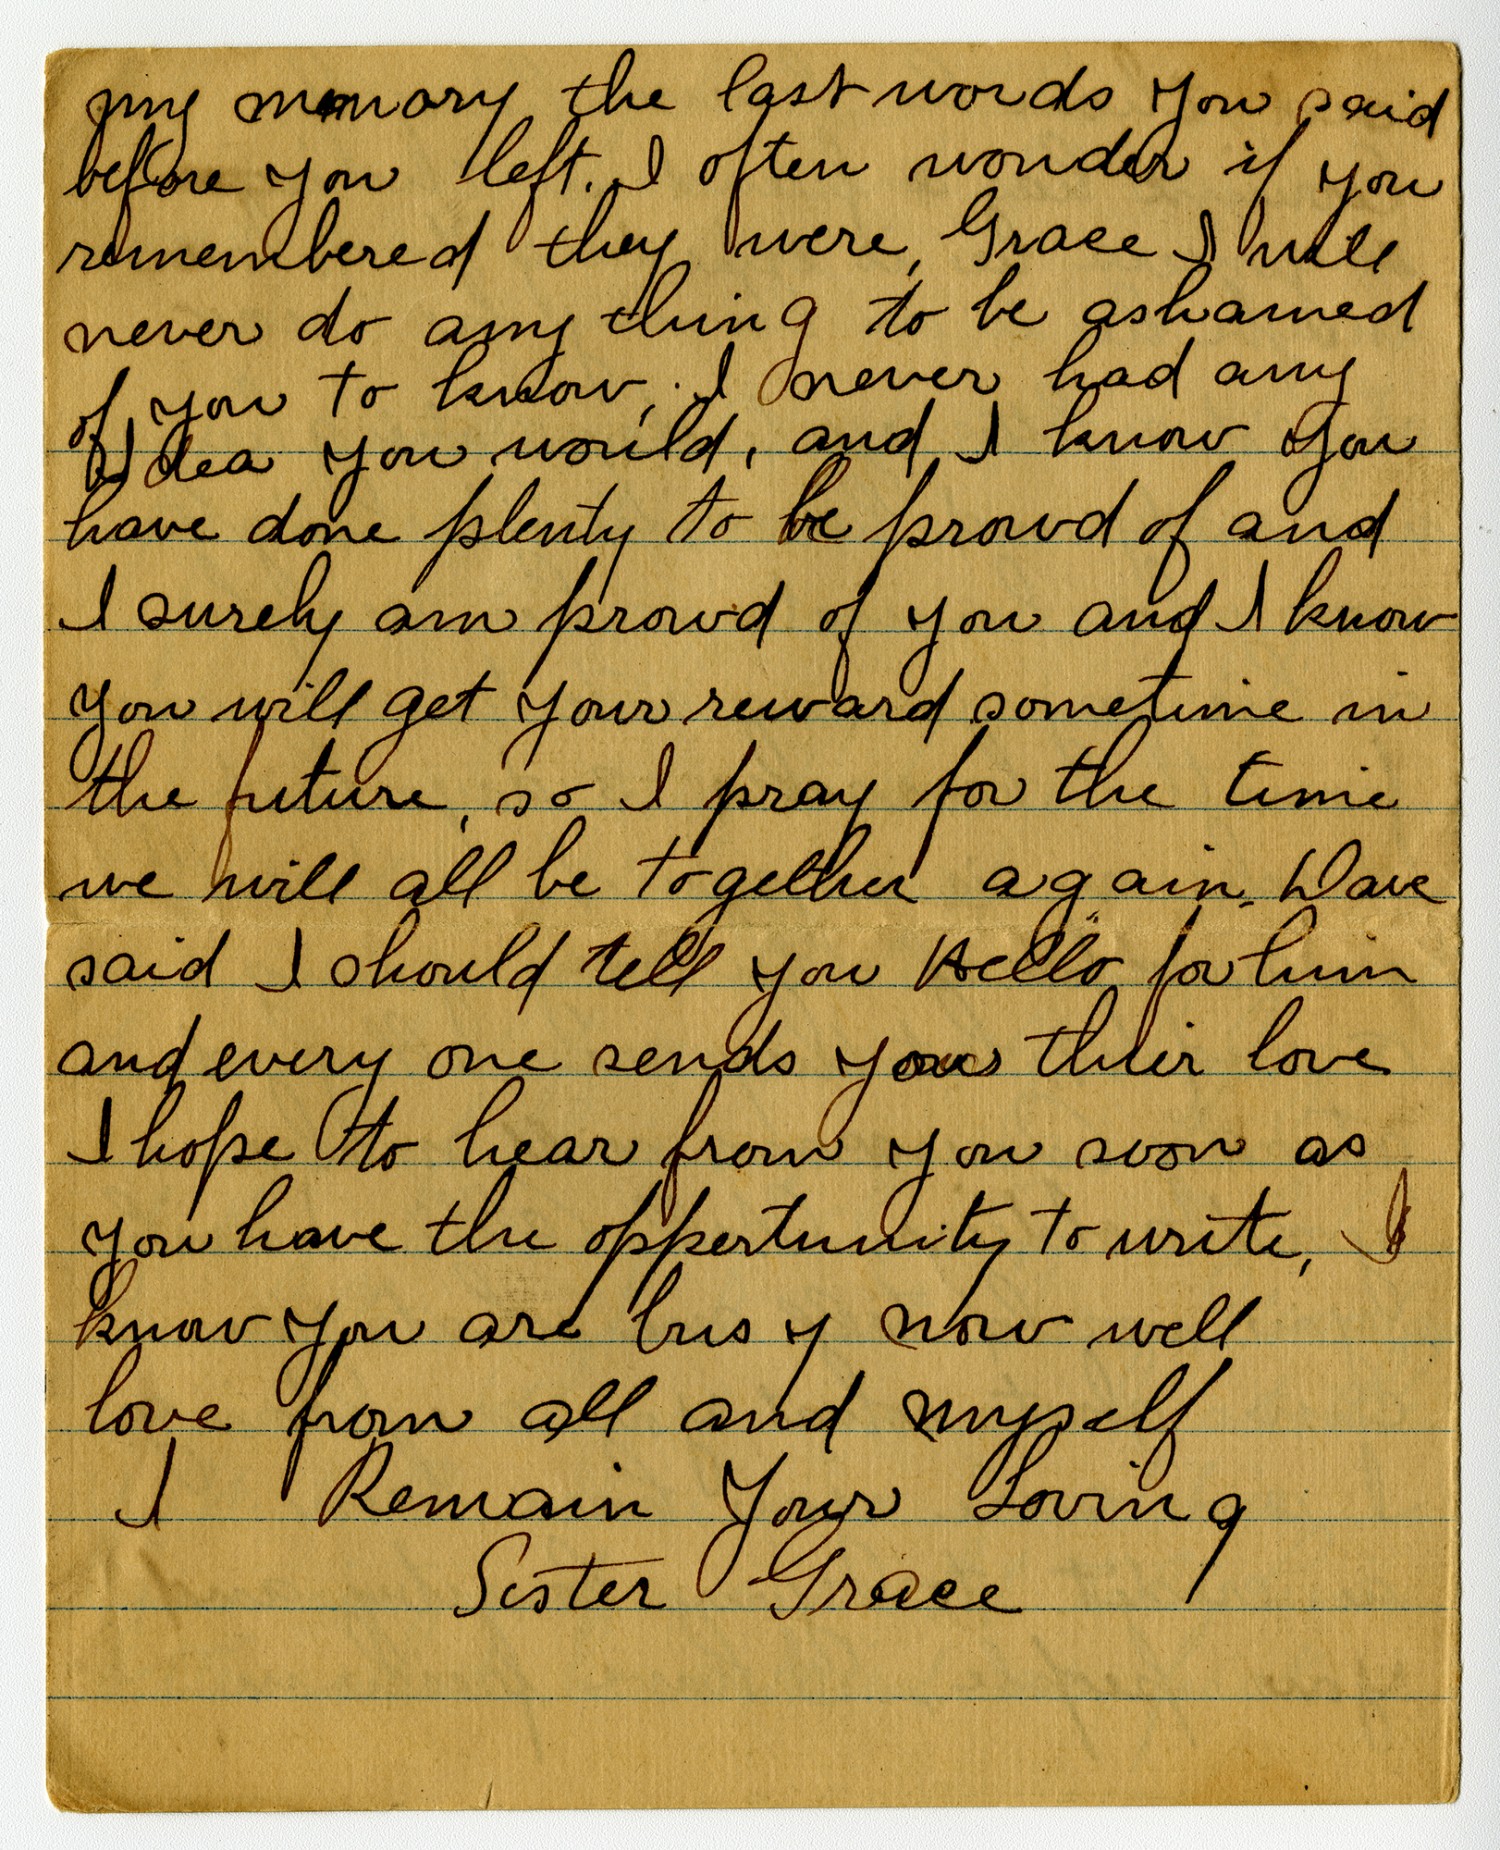 my memory the last words you said
before you left. I often wonder if you
remembered they were, Grace I will
never do any thing to be ashamed
of you to know, I never had any
Idea you would, and I know you
have done plenty to be proud of and
I surely am proud of you and I know
you will get your reward sometime in
the future, so I pray for the time
we will all be together again. Dave
said I should tell you Hello for him
and every one sends you their love
I hope to hear from you soon as
you have the oppertunity to write, I
know you are busy now well
love from all and myself
I Remain Your Loving
Sister Grace